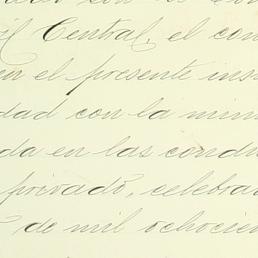 il Central, el con
en el presente ins
dad con la mim
da en las condi
privado, celebra
de mil ochocien